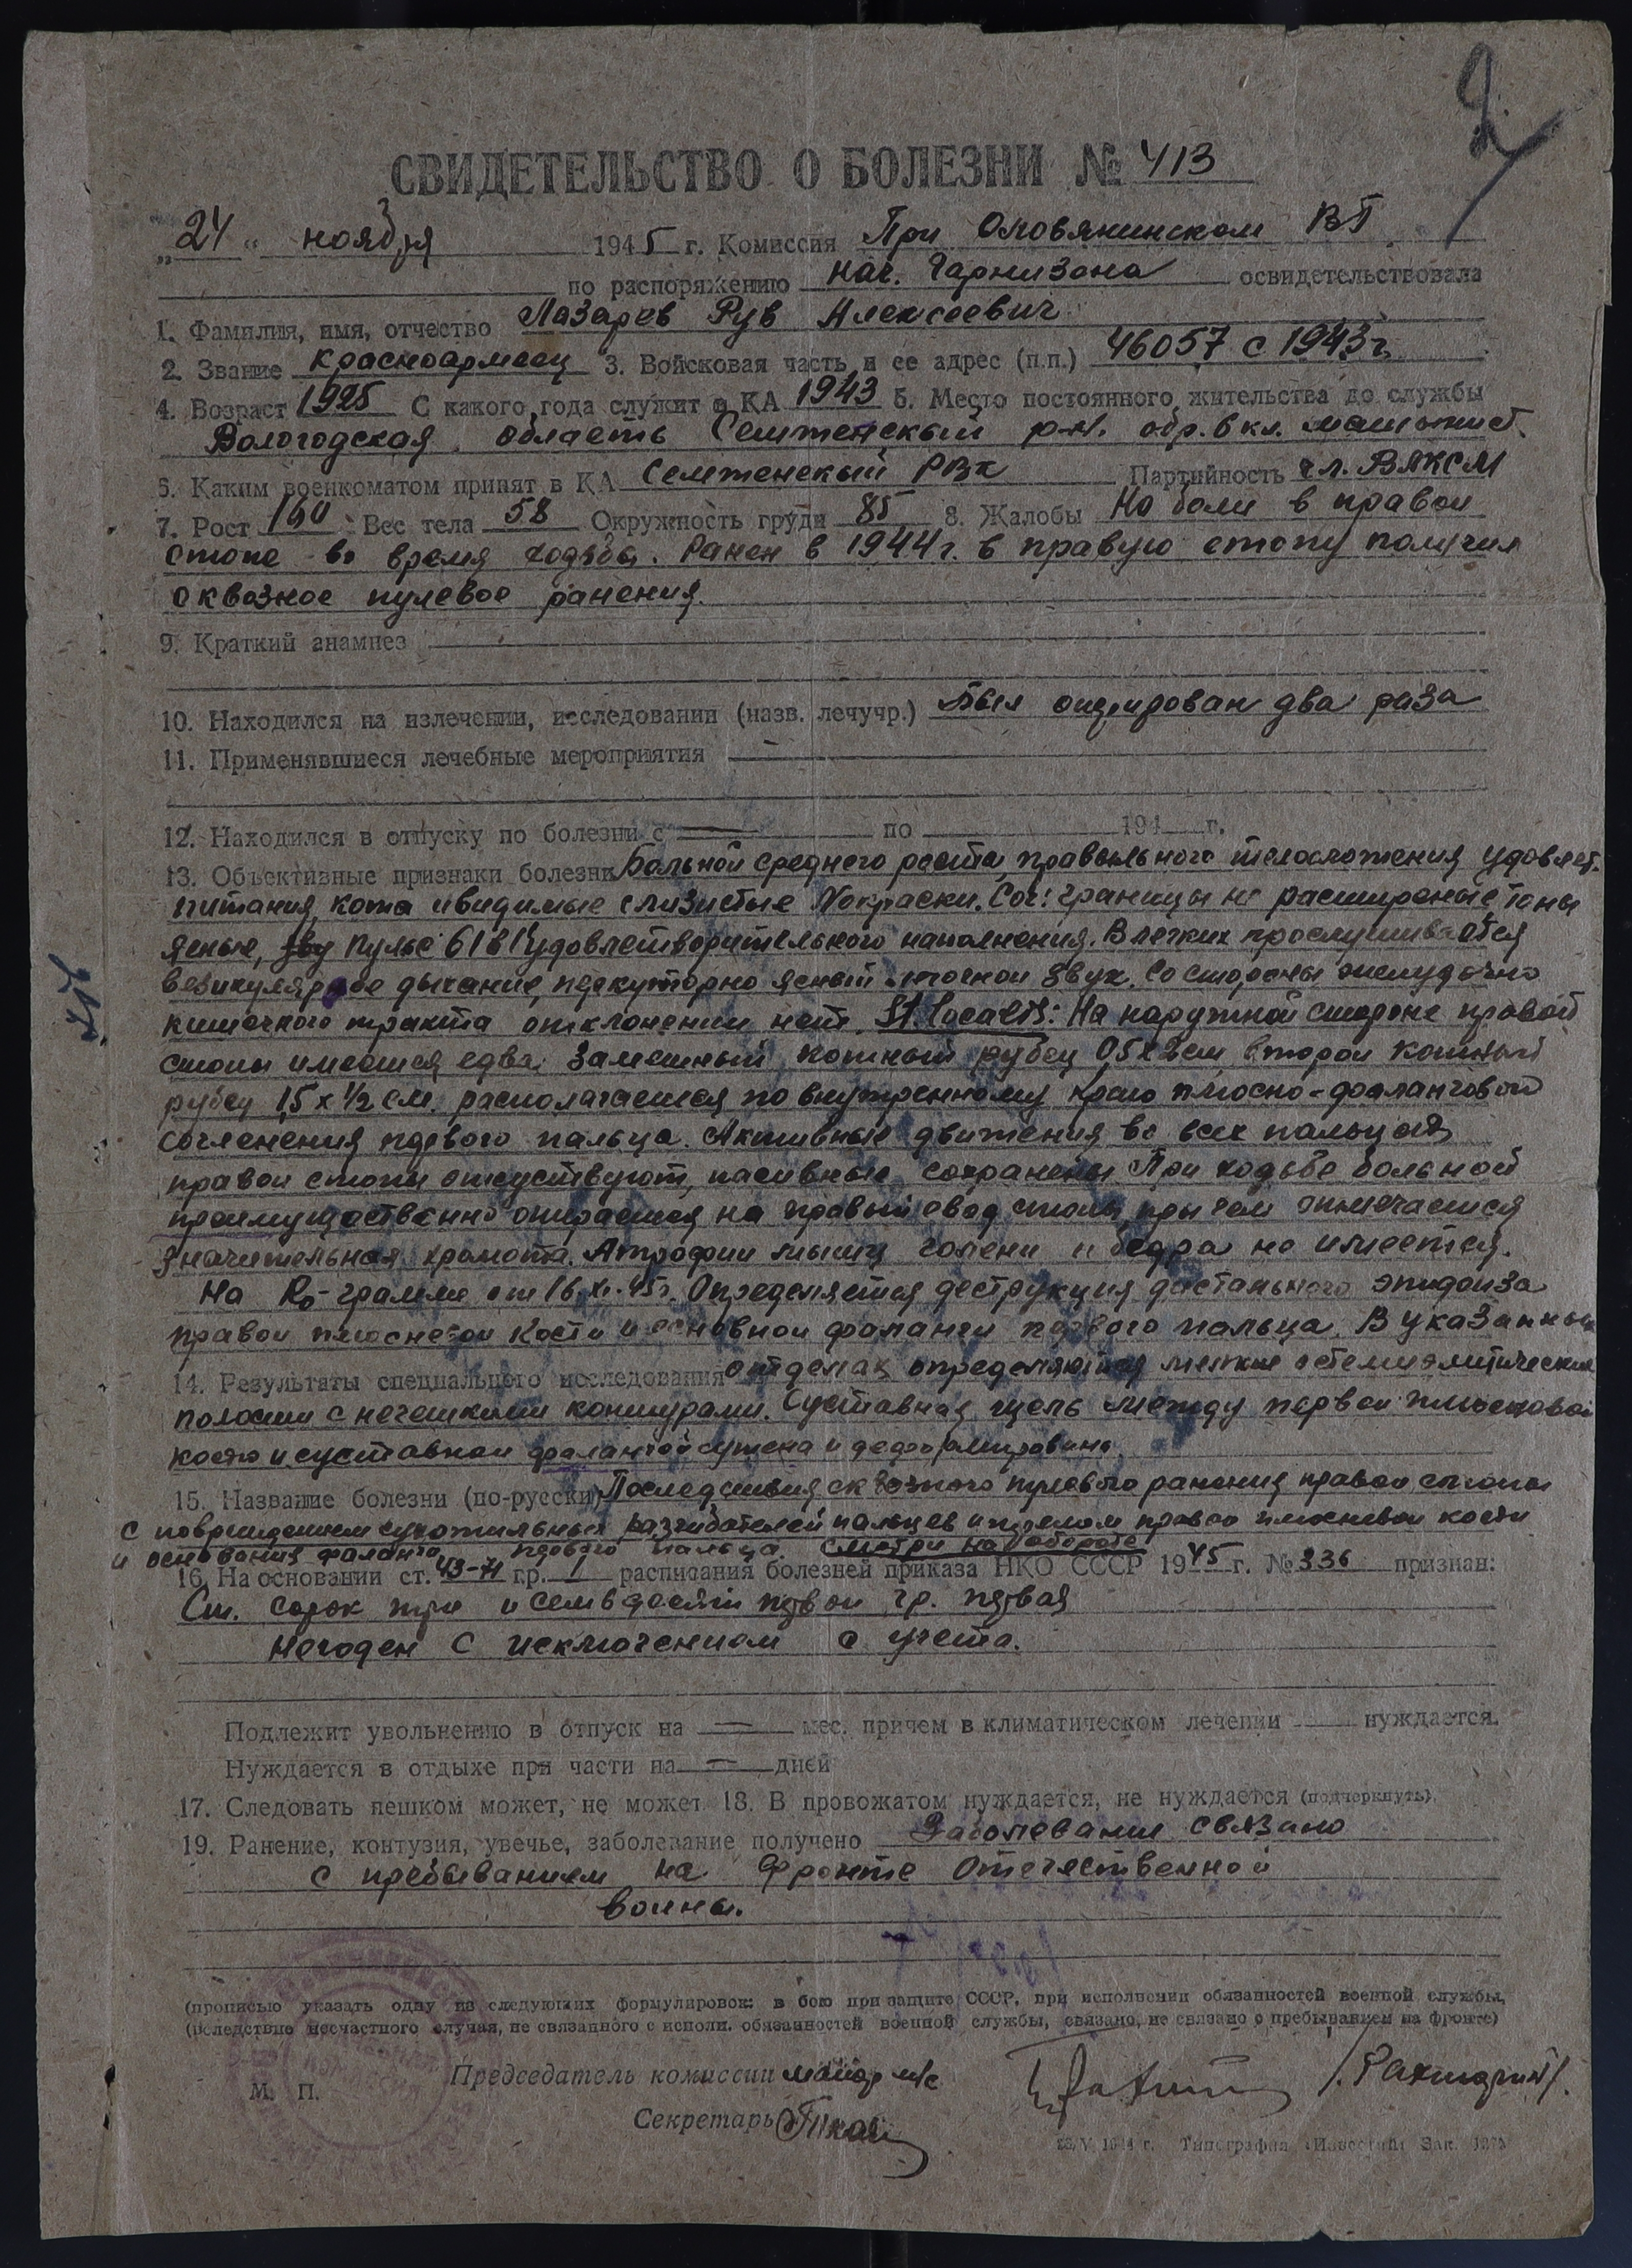 2
СВИДЕТЕЛЬСТВО О БОЛЕЗНИ № 413
„24“ ноября 1945 г. Комиссия При Оловянинском ВГ
по распоряжению нач. Гарнизона освидетельствовала
1. Фамилия, имя, отчество Лазарев Рув Алексеевич
2. Звание красноармеец 3. Войсковая часть и ее адрес (п.п.) 46057 с 1943 г.
4. Возраст 1925 С какого года служит в КА 1943 5. Место постоянного жительства до службы
Вологодская область Семженский р-н. обр. 6 кл. машинист.
6. Каким военкоматом принят в КА Семженский РВК Партийность чл. ВЛКСМ
7. Рост 160 Вес тела 58 Окружность груди 85 8. Жалобы На боли в правои
стопе во время ходьбы. Ранен в 1944 г. в правую стопу получил
сквозное пулевое ранения.
9. Краткий анамнез
10. Находился на излечении, исследовании (назв. лечучр.) Был оперирован два раза
11. Применявшиеся лечебные мероприятия
12. Находился в отпуску по болезни с по 194 г.
13. Объективные признаки болезни Больной среднего роста, правильного телосложения удовлет.
питания, кожа и видимые слизистые N окраски. Cor: границы не расширеные тоны
ясные, пульс 61 в 1' удовлетворительного наполнения. В легких прослушивается
везикулярное дыхание, перкуторно ясный легочнои звук. Со стороны желудочно
кишечного тракта отклонении нет. St. localis: На наружной стороне правой
стопы имеется едва заметный кожный рубец 0,5 х 2 см, второи кожный
рубец 1,5 х 1/2 см. располагается по внутренному краю плюсно-фаланговой
сочленения первого пальца. Активные движения во всех пальцах
правои стопы отсуствуют, пасивные сохранены. При ходьбе больной
преимущественно опирается на правый свод стопы, при чем отмечается
значительная хромота. Атрофии мышц голени и бедра не имеется.
На Ro-грамме от 16.XI.45 г. Определяется деструкция дистального эпифиза
правои плюсневои кости и основнои фаланги первого пальца. В указанных
14. Результаты специального исследования отделах определяются мелкие остемиэлитические
полости с нечеткими контурами. Суставная щель между первои плюсневои
костю и суставнои фалангой сужена и деформирована
15. Название болезни (по-русски) Последствия сквозного пулевого ранения правои стопы
с повреждением сухожильных разгибателей пальцев и прелом правои плюсневои кости
и основания фаланга первого пальца. смотри на обороте
16. На основании ст. 43-71 гр. 1 расписания болезней приказа НКО СССР 1945 г. № 336 признан:
Ст. сорок три и семьдесят первои гр. первая
Негоден с исключением с учета.
Подлежит увольнению в отпуск на мес. причем в климатическом лечении нуждается.
Нуждается в отдыхе при части на дней
17. Следовать пешком может, не может. 18. В провожатом нуждается, не нуждается (подчеркнуть).
19. Ранение, контузия, увечье, заболевание получено Заболевание связано
с пребыванием на фронте Отечественной
воины.
(прописью указать одну из следующих формулировок: в бою при защите СССР, при исполнении обязанностей военной службы,
(вследствие несчастного случая, не связанного с исполн. обязанностей военной службы, связано, не связано с пребыванием на фронте)
Председатель комиссии майор м/с
М. П.
Секретарь
Типография